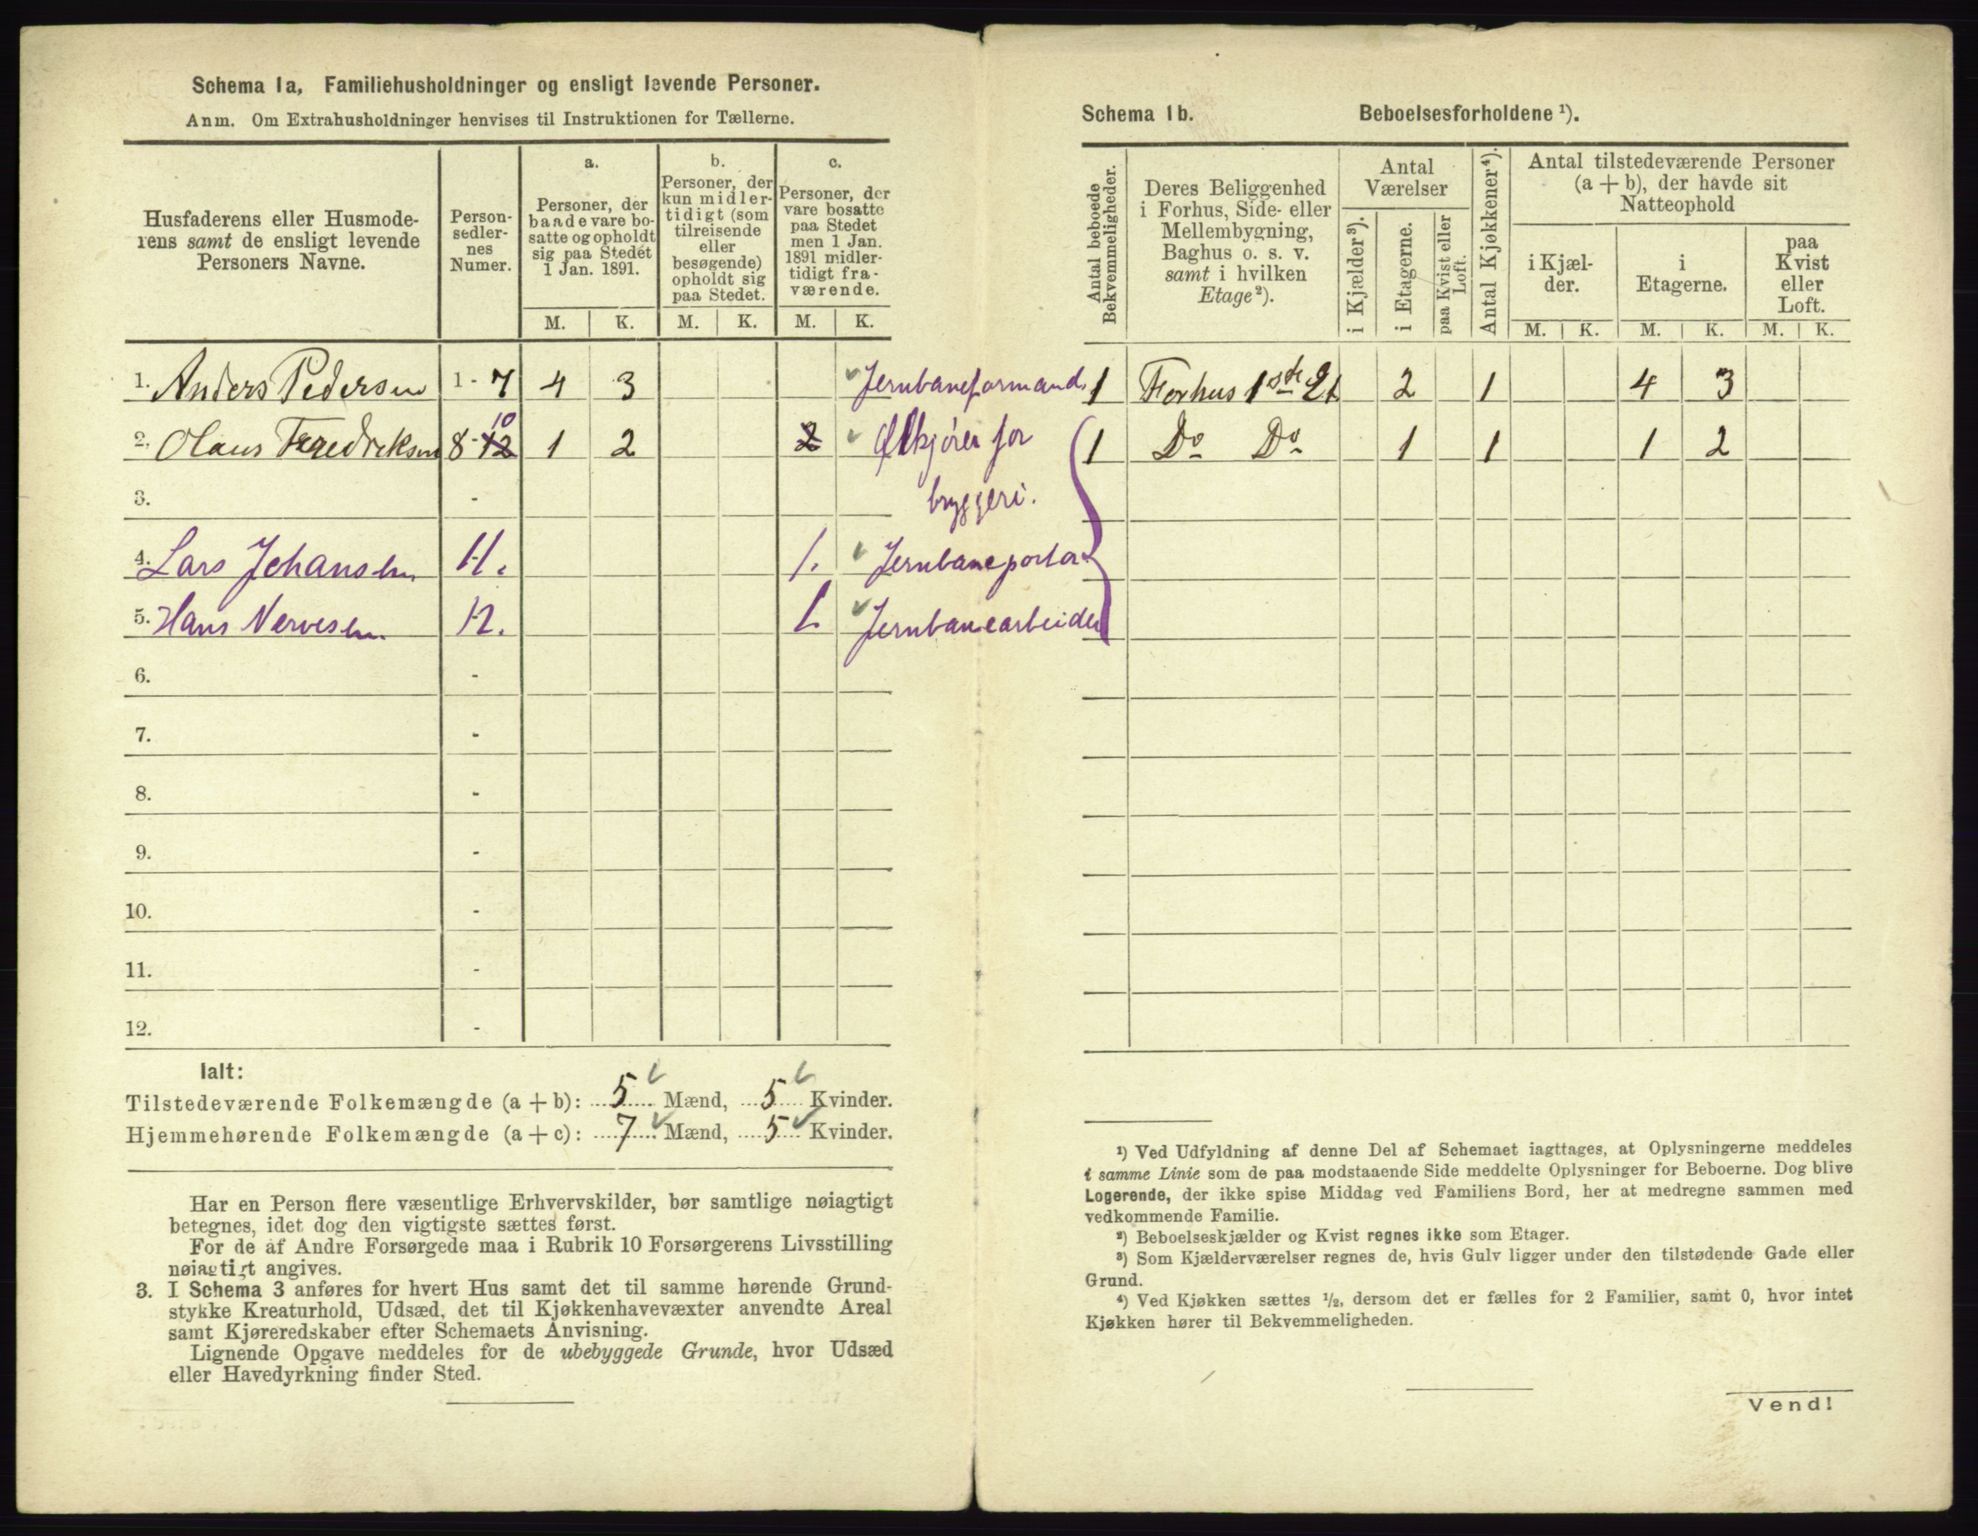 Schema 1a, Familiehusholdninger og ensligt levende Personer.
Anm. Om Extrahusholdninger henvises til Instruktionen for Tællerne.
Husfaderens eller Husmoderens samt de ensligt levende Personers Navne.
Person-sedler-nes Numer.
a. Personer, der baade vare bosatte og opholdt sig paa Stedet 1 Jan. 1891.
b. Personer, der kun midlertidigt (som tilreisende eller besøgende) opholdt sig paa Stedet.
c. Personer, der vare bosatte paa Stedet men 1 Jan. 1891 midlertidigt fraværende.
M. K. M. K. M. K.
1. Anders Pedersen 1 - 7 4 3 Jernbaneformand
2. Olaus Fredriksen 8 - 12 10 1 2 2 Ølkjører for
3. - bryggeri.
4. Lars Johansen 11. 1. Jernbaneportør
5. Hans Nervesen 12. 1. Jernbanearbeider
6. -
7. -
8. -
9. -
10. -
11. -
12. -
Ialt:
Tilstedeværende Folkemængde (a + b): 5 Mænd, 5 Kvinder.
Hjemmehørende Folkemængde (a + c): 7 Mænd, 5 Kvinder.
Har en Person flere væsentlige Erhvervskilder, bør samtlige nøiagtigt
betegnes, idet dog den vigtigste sættes først.
For de af Andre Forsørgede maa i Rubrik 10 Forsørgerens Livsstilling
nøiagtigt angives.
3. I Schema 3 anføres for hvert Hus samt det til samme hørende Grund-
stykke Kreaturhold, Udsæd, det til Kjøkkenhavevæxter anvendte Areal
samt Kjøreredskaber efter Schemaets Anvisning.
Lignende Opgave meddeles for de ubebyggede Grunde, hvor Udsæd
eller Havedyrkning finder Sted.
Schema 1b. Beboelsesforholdene ¹).
Antal beboede Bekvemmeligheder.
Deres Beliggenhed i Forhus, Side- eller Mellembygning, Baghus o. s. v. samt i hvilken Etage²).
Antal Værelser
i Kjælder³).
i Etagerne.
paa Kvist eller Loft.
Antal Kjøkkener⁴).
Antal tilstedeværende Personer (a + b), der havde sit Natteophold
i Kjælder.
i Etagerne.
paa Kvist eller Loft.
M. K. M. K. M. K.
1 Forhus 1ste Et 2 1 4 3
1 Do Do 1 1 1 2
¹) Ved Udfyldning af denne Del af Schemaet iagttages, at Oplysningerne meddeles
i samme Linie som de paa modstaaende Side meddelte Oplysninger for Beboerne. Dog blive
Logerende, der ikke spise Middag ved Familiens Bord, her at medregne sammen med
vedkommende Familie.
²) Beboelseskjælder og Kvist regnes ikke som Etager.
³) Som Kjælderværelser regnes de, hvis Gulv ligger under den tilstødende Gade eller
Grund.
⁴) Ved Kjøkken sættes ½, dersom det er fælles for 2 Familier, samt 0, hvor intet
Kjøkken hører til Bekvemmeligheden.
Vend!